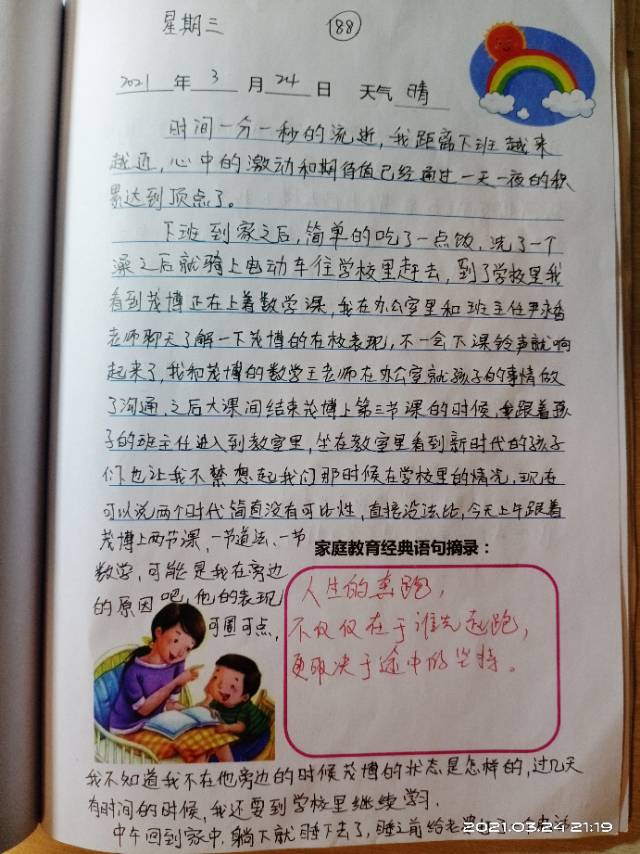 星期三
188
2021 年 3 月 24 日 天气 晴
时间一分一秒的流逝，我距离下班越来
越近，心中的激动和期待值已经通过一天一夜的积
累达到顶点了。
下班到家之后，简单的吃了一点饭，洗了一个
澡之后就骑上电动车往学校里赶去，到了学校里我
看到茂博正在上着数学课，我在办公室里和班主任尹
老师聊天了解一下茂博的在校表现，不一会下课铃声就响
起来了，我和茂博的数学王老师在办公室就孩子的事情做
了沟通，之后大课间结束茂博上第三节课的时候，我跟着孩
子的班主任进入到教室里，坐在教室里看到新时代的孩子
们，也让我不禁想起我们那时候在学校里的情况，现在
可以说两个时代简直没有可比性，直接没法比，今天上午跟着
茂博上两节课，一节道法、一节
数学，可能是我在旁边
的原因吧，他的表现
可圈可点，
家庭教育经典语句摘录：
人生的赛跑，
不仅仅在于谁先起跑，
更取决于途中的坚持。
我不知道我不在他旁边的时候茂博的状态是怎样的，过几天
有时间的时候，我还要到学校里继续学习．
中午回到家中，躺下就睡下去了，睡之前给老婆打了一个电话
2021.03.24 21:19